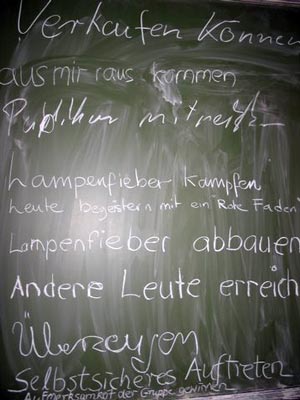 Verkaufen Können
aus mir raus kommen
Publikum mitreißen
Lampenfieber kämpfen
Leute begeistern mit ein Rote Faden
Lampenfieber abbauen
Andere Leute erreich
Überzeugen
Selbstsicheres Auftreten
Aufmerksamkeit der Gruppe gewinnen